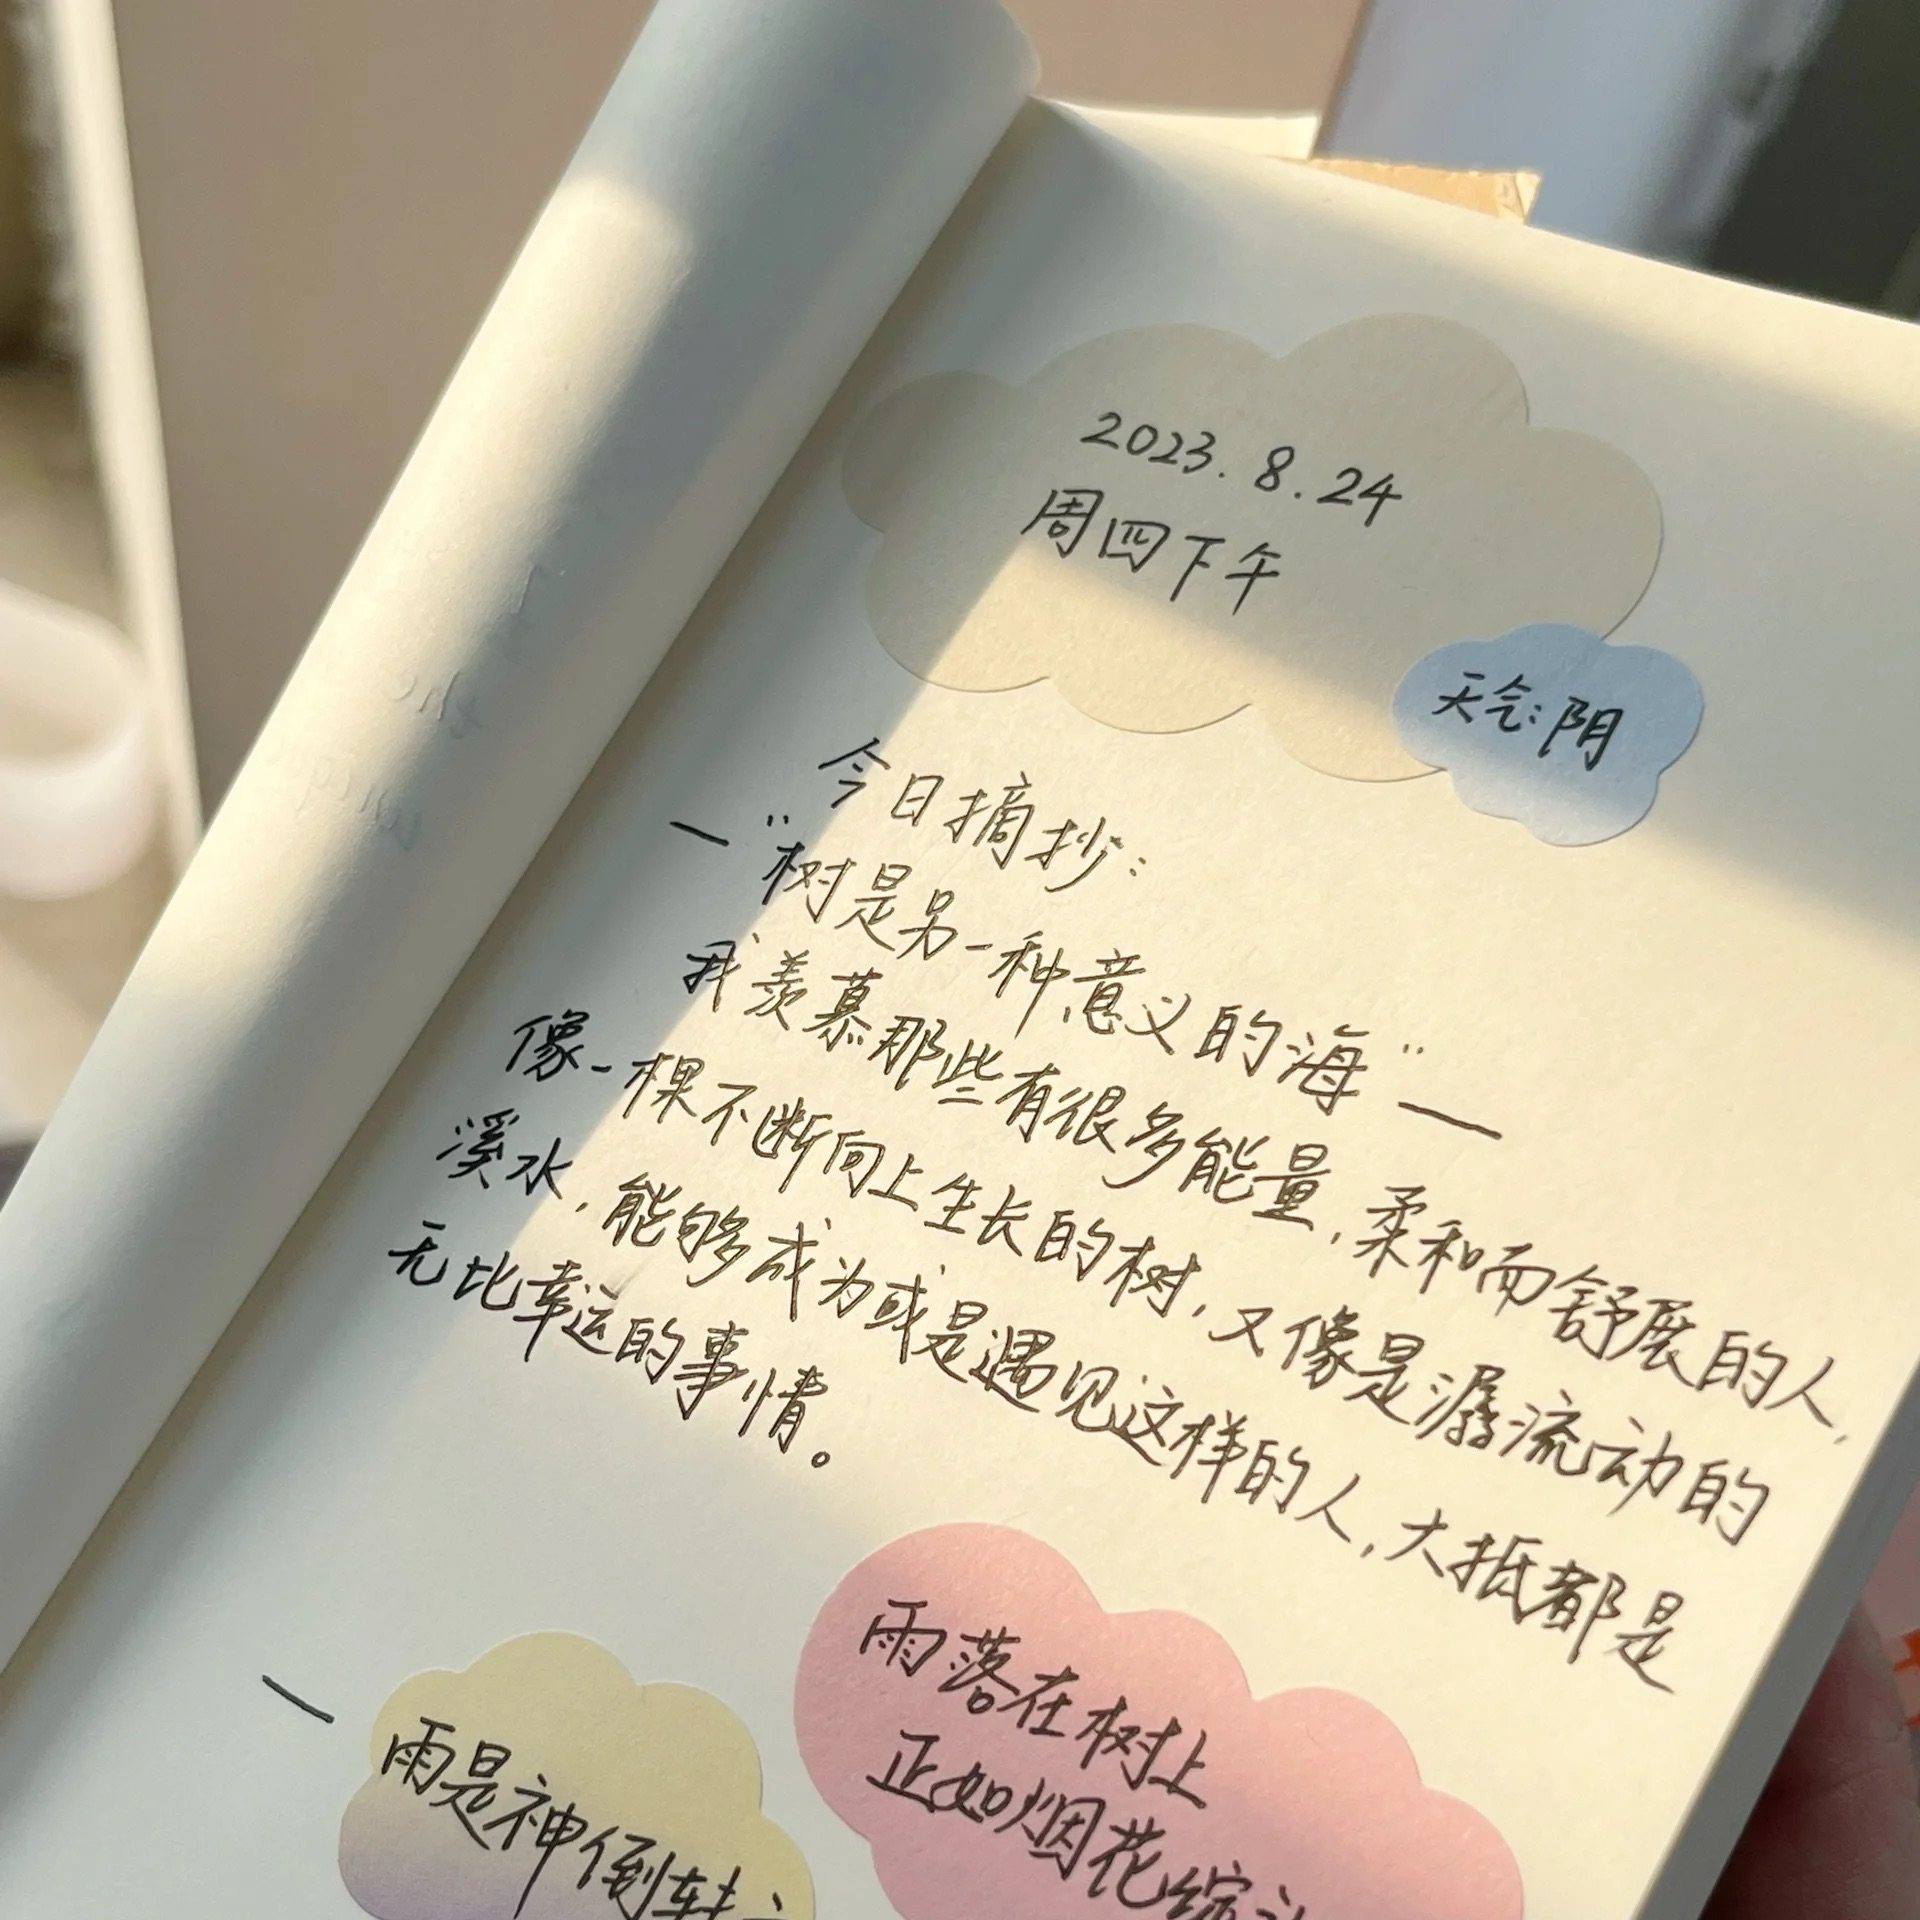 2023.8.24
周四下午
天气:阴
今日摘抄:
—“树是另一种意义的海”—
我羡慕那些有很多能量,柔和而舒展的人,
像一棵不断向上生长的树,又像是潺流动的
溪水,能够成为或是遇见这样的人,大抵都是
无比幸运的事情。
雨落在树上
正如烟花绽
— 雨是神倒转